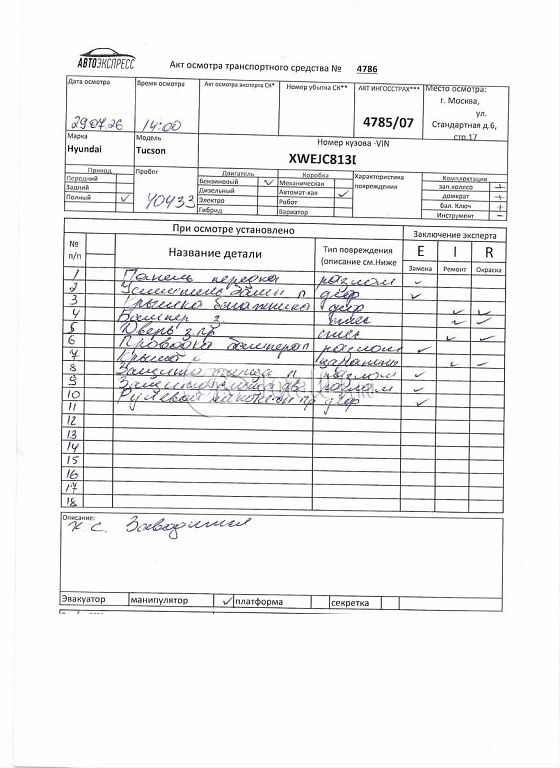 АВТОЭКСПРЕСС
Акт осмотра транспортного средства № 4786
Дата осмотра Время осмотра Акт осмотра эксперта СК* Номер убытка СК** АКТ ИНГОССТРАХ*** Место осмотра:
г. Москва,
ул.
29.07.26 14:00 4785/07 Стандартная д.6,
стр.17
Марка Модель Номер кузова -VIN
Hyundai Tucson XWEJC813I
Привод Пробег Двигатель Коробка Характеристика повреждения Комплектация
Передний Бензиновый ✓ Механическая зап.колесо +
Задний 40433 Дизельный Автомат-кая ✓ домкрат +
Полный ✓ Электро Робот бал. Ключ +
Гибрид Вариатор Инструмент -
При осмотре установлено Заключение эксперта
№ п/п Название детали Тип повреждения (описание см.Ниже E I R
Замена Ремонт Окраска
1 Панель передка разлом ✓
2 деф ✓
3 Крышка багажника деф
4 Бампер з. ✓ ✓
5 Дверь з.пр
6 Проводка бампера разлом ✓ ✓
7 Крыло ✓
8 разлом ✓ ✓
9 разлом ✓
10 Рулевой наконечн пр деф ✓
11 ✓
12
13
14
15
16
17
18
Описание:
х с. Заводится
Эвакуатор манипулятор ✓ платформа секретка